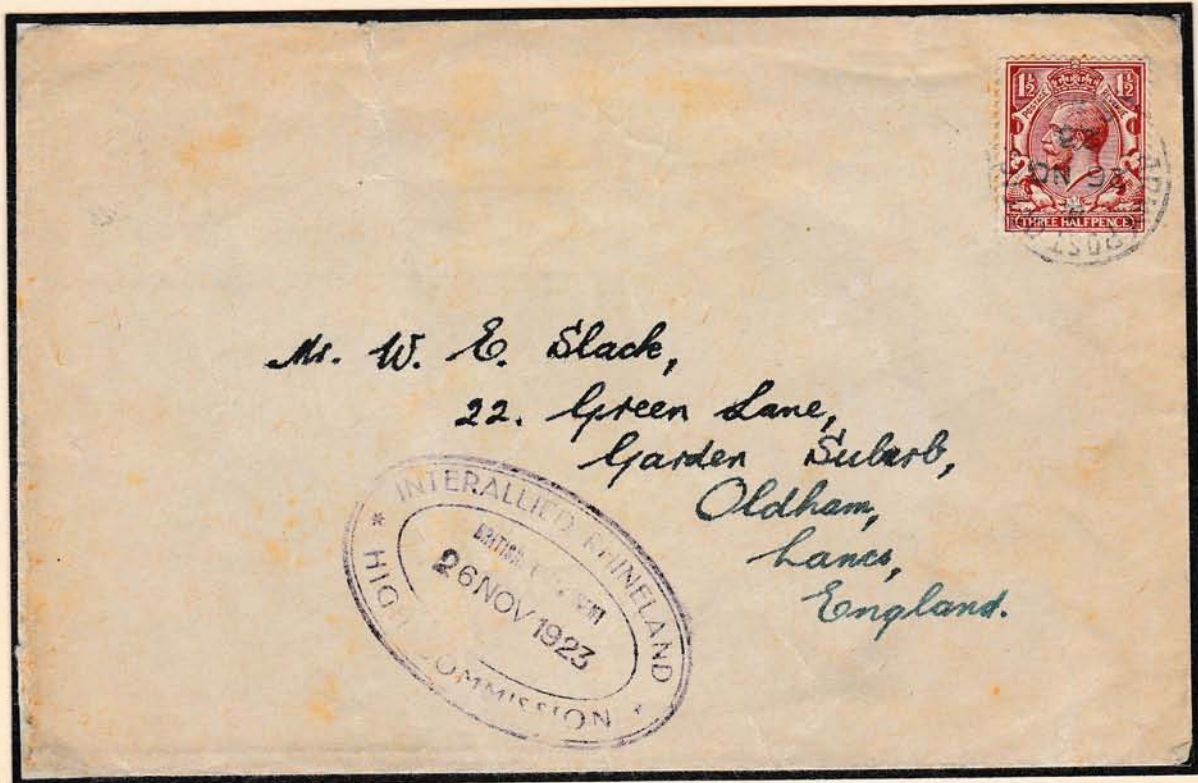 1½ 1½
POSTAGE REVENUE
THREE HALFPENCE
ARMY POST
26 NO
23
Mr. W. E. Slack,
22. Green Lane,
Garden Suburb,
Oldham,
Lancs,
England.
INTERALLIED RHINELAND
* HIGH COMMISSION *
BRITISH
26 NOV 1923